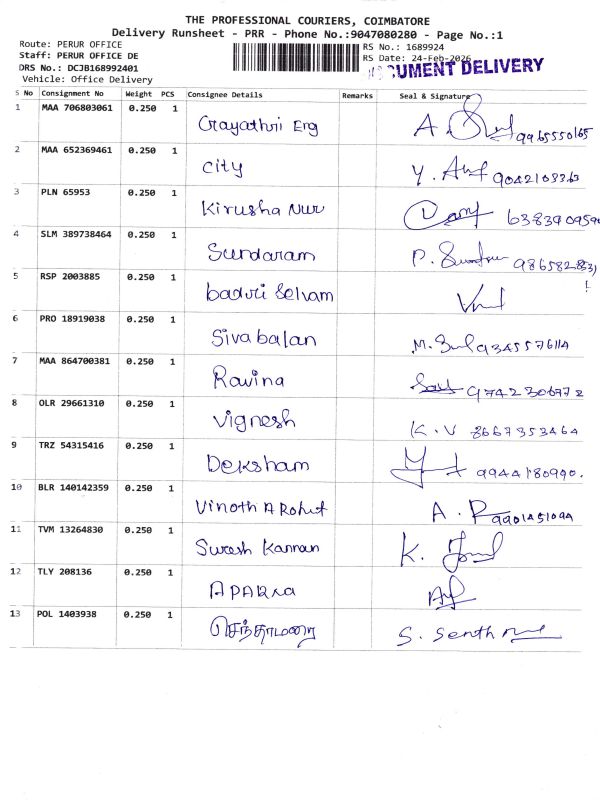 THE PROFESSIONAL COURIERS, COIMBATORE
Delivery Runsheet - PRR - Phone No.:9047080280 - Page No.:1
Route: PERUR OFFICE
Staff: PERUR OFFICE DE
DRS No.: DCJB168992401
Vehicle: Office Delivery
RS No.: 1689924
RS Date: 24-Feb-2026
DOCUMENT DELIVERY
S No Consignment No Weight PCS Consignee Details Remarks Seal & Signature
1 MAA 706803061 0.250 1 Gayathri Eng A 9965550165
2 MAA 652369461 0.250 1 City Y. 9042108363
3 PLN 65953 0.250 1 Kirusha Nur
4 SLM 389738464 0.250 1 Sundaram P.
5 RSP 2003885 0.250 1 badvri Selvam
6 PRO 18919038 0.250 1 Sivabalan M.
7 MAA 864700381 0.250 1 Ravina 9742306772
8 OLR 29661310 0.250 1 Vignesh K.V 8667353464
9 TRZ 54315416 0.250 1 Deksham 9944180990.
10 BLR 140142359 0.250 1 Vinoth A Rohit A.
11 TVM 13264830 0.250 1 Suresh Kannan K.
12 TLY 208136 0.250 1 APARNA
13 POL 1403938 0.250 1 செந்தாமரை S.